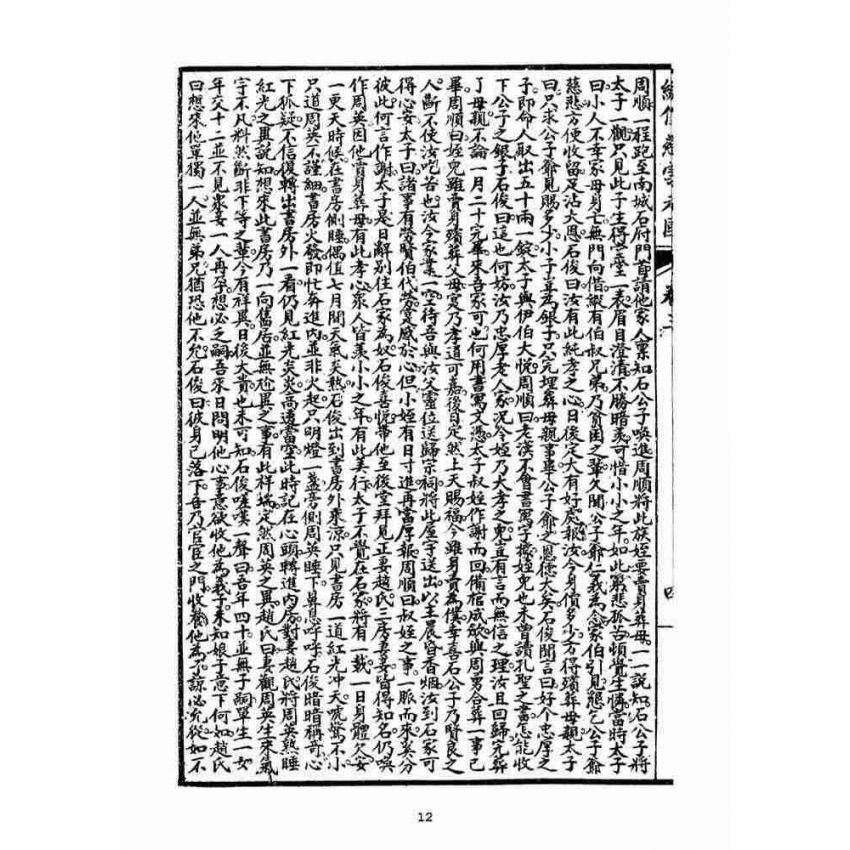 繡像慈雲走國 卷三 四
周順一程跑至南城石府門首請他家人禀知石公子喚進周順將此族姪要賣身葬母一一說知石公子將
太子一觀只見此子生得堂堂一表眉目澄清不勝暗羨可惜小小之年如此窮悲孤苦頓覺生憐當時太子
曰小人不幸家母身亡無門向借雖有伯叔兄弟乃貧困之輩久聞公子爺仁義為念家伯引見懇乞公子爺
慈悲方便收留足沾大恩石俊曰汝有此純孝之心日後定大有好處報汝今身價多少方得殯葬母親太子
曰只求公子爺見賜多少小子豈為銀子只完埋葬母親事畢公子爺之恩德大矣石俊聞言曰好个忠厚之
子即命人取出五十兩一錠太子與伊伯大悅周順曰老漢不會書寫字據姪兒也未曾讀孔聖之書怎能收
下公子之銀子石俊曰這也何妨汝乃忠厚老人家況令姪乃大孝之兒豈有言而無信之理汝且回歸完葬
了母親不論一月二十完畢來吾家可也何用書寫文憑太子叔姪作謝而回備棺成殮與周男合葬一事已
畢周順曰姪兒雖賣身殯葬父母實乃孝道可嘉後日定然上天賜福今雖身賣為僕幸喜石公子乃賢良之
人斷不使汝吃苦也汝今家業一空待吾與汝父靈位送歸宗祠將此屋宇送出以主晨昏香烟汝到石家可
得心安太子曰諸事有勞賢伯代勞當感於心但小姪有日寸進再當厚報周順曰叔姪之事一脈而來奚分
彼此何言作謝太子是日辭別往石家為奴石俊喜悅帶他至後堂拜見正妻趙氏三房妻妾皆得知名仍喚
作周英因他賣身葬母有此孝心衆人皆羨小小之年有此美行太子不覺在石家將有一載一日身體欠安
一更天時候在書房側睡偶值七月間天氣炎熱石俊出到書房外乘涼只見書房一道紅光冲天唬驚不小
只道周英不謹細書房火發即忙奔進內並非火起只明燈一盞旁側周英睡下鼻息呼呼石俊暗暗稱奇心
下狐疑不信復轉出書房外一看仍見紅光炎炎高透當空此時記在心頭轉進內房對妻趙氏將周英熟睡
紅光之異說知想來此書房乃一向舊居並無他異之事有此祥瑞定然周英之異趙氏曰妻觀周英生來氣
宇不凡料然斷非下等之輩今有祥異日後大貴也未可知石俊嗟嘆一聲曰吾年四十並無子嗣單生一女
年交十二並不見衆妾一人再孕想必乏嗣吾來日問明他心事意欲收他為義子未知娘子意下何如趙氏
曰想來他單獨一人並無弟兄猶恐他不允石俊曰彼身已落下吾乃官宦之門收養他為子諒必允從如不
12